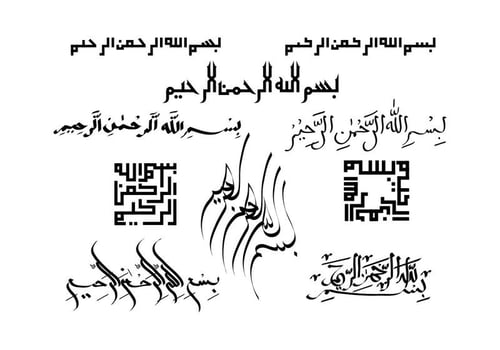 بسم الله الرحمن الرحيم
بسم الله الرحمن الرحيم
بسم الله الرحمن الرحيم
بِسْمِ اللهِ الرَّحْمٰنِ الرَّحِيْمِ
بِسْمِ اللَّهِ الرَّحْمٰنِ الرَّحِيمِ
بسم الله الرحمن الرحيم
بسم الله
الرحمن
الرحيم
بسم الله الرحمن الرحيم
بسم الله الرحمن الرحيم